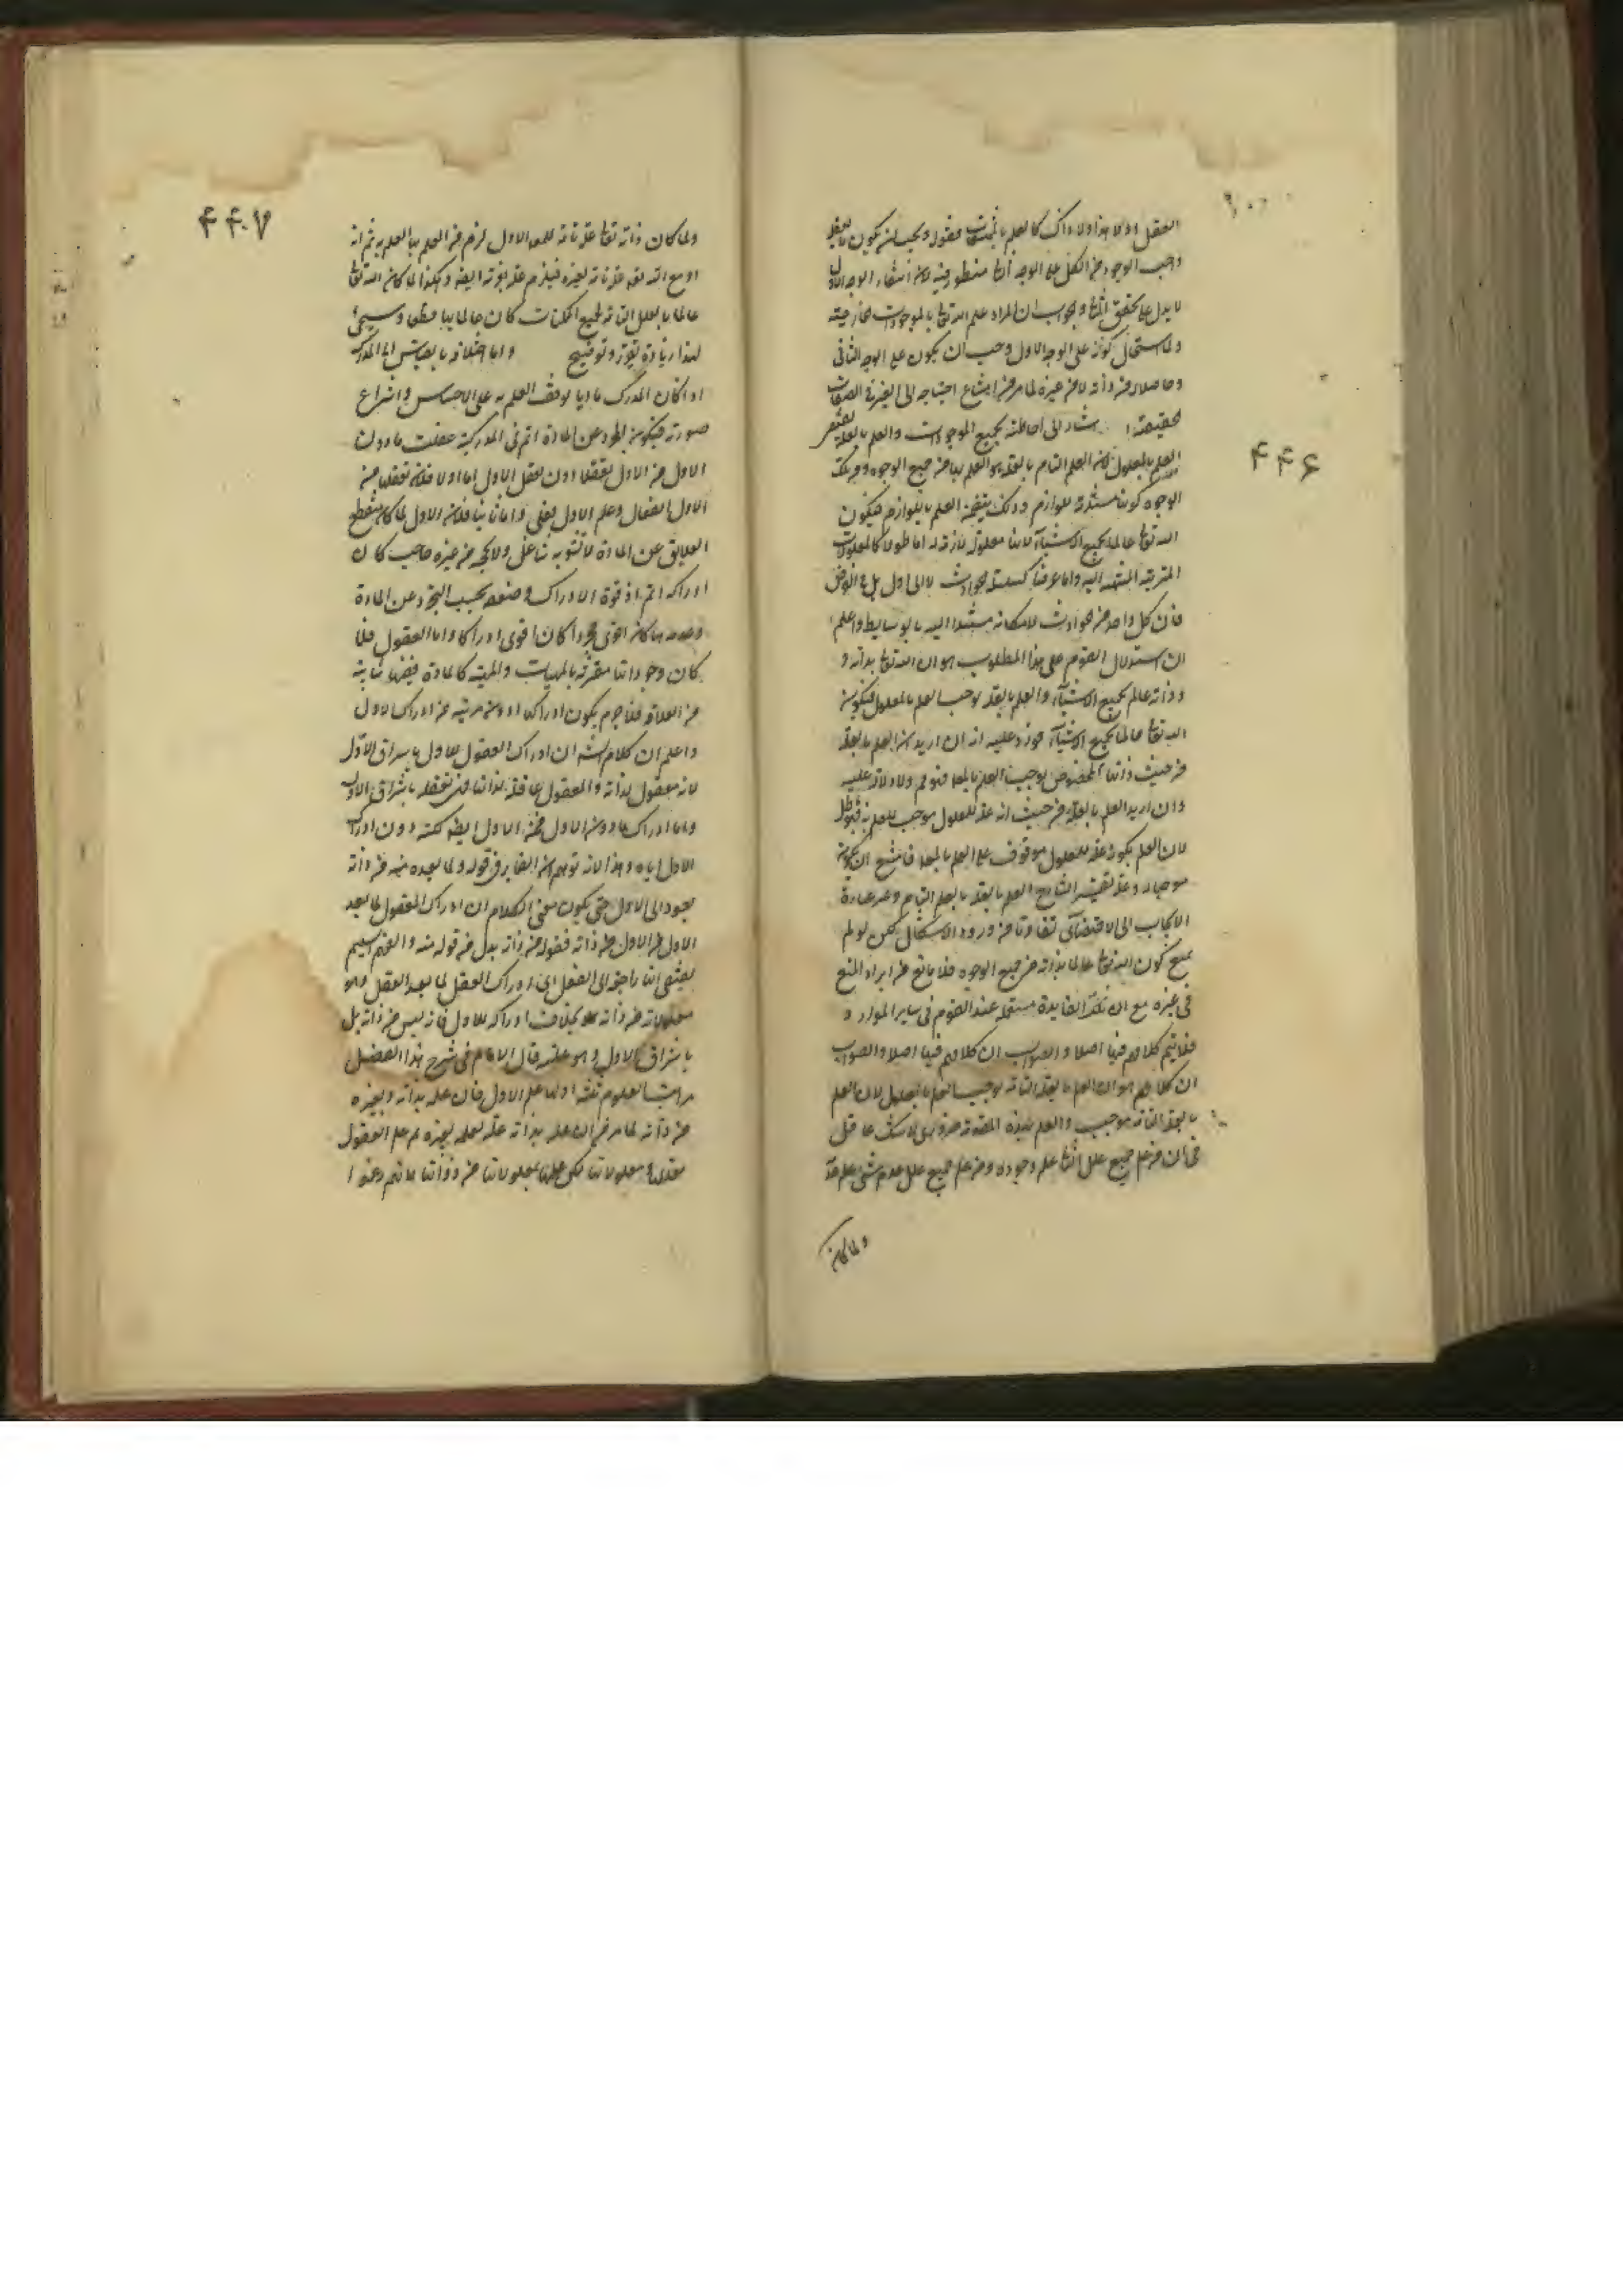 ۴۴۶
العقل اولا هذا ولا ذاك كالعلم بالممتنعات فقوله ويجب ان يكون
واجب الوجود من الكل على الوجه الثانى منظور فيه لان انتفاء الوجه الاول
لا يدل على تحقق الثانى والجواب ان المراد علم الله تعالى بالموجودات الخارجية
ولما استحال كونه على الوجه الاول وجب ان يكون على الوجه الثانى
وحاصلا من ذاته لا من غيره لما مر من امتناع احتياجه الى الغير فى الصفات
الحقيقية اشار الى احاطته بجميع الموجودات والعلم بالعلة
العلم بالمعلول لان العلم التام بالعلة هو العلم بها من جميع الوجوه ومن تلك
الوجوه كونها مستلزمة للوازم وذلك يتضمن العلم باللوازم فيكون
الله تعالى عالما بجميع الاشياء لانها معلولة لازمة له اما طولا كالمعلولات
المترتبة المنتهية اليه واما عرضا كسلسلة الحوادث لا الى اول بل فى العرض
فان كل واحد من الحوادث لامكانه مستند اليه بالوسايط واعلم
ان استدلال القوم على هذا المطلوب هو ان الله تعالى بذاته و
وذاته عالم بجميع الاشياء والعلم بالعلة يوجب العلم بالمعلول فيكون
الله تعالى عالما بجميع الاشياء فورد عليه انه ان اريد ان العلم بالعلة
من حيث ذاتها المخصوص يوجب العلم بالمعلول فهو ولا دلالة عليه
وان اريد العلم بالعلة من حيث انه علة للمعلول موجب للعلم به
لان العلم بكونه علة للمعلول موقوف على العلم بالمعلول فامتنع ان يكون
موجبا له وعند تفسير الشارح العلم بالعلة بالعلم التام وغير عبارة
الايجاب الى الاقتضاء تفاوتا من ورود الاشكال لكن لو لم
يمنع كون الله تعالى عالما بذاته من جميع الوجوه فلا مانع من ايراد المنع
فى غيره مع ان تلك القاعدة مستعملة عند القوم فى ساير الموارد و
فلا يتم كلامهم فيها اصلا والصواب ان كلامهم فيها اصلا والصواب
ان كلامهم هو ان العلم بالعلة التامة يوجب العلم بالمعلول لان العلم
بالعلة التامة موجب والعلم بهذه المقدمة ضرورى لا يشك عاقل
فى ان من علم جميع علل الشئ علم وجوده ومن علم جميع علل عدم شئ علم عدمه
ولما كان
۴۴۰۷
ولما كان ذاته تعالى علة تامة للمعلول الاول لزم من العلم بها العلم به ثم انه
او مع الله تعالى علة تامة لغيره فيلزم علمه بغيره ايضا وهكذا لما كان الله تعالى
عالما بالعلل التامة لجميع الممكنات كان عالما بها قطعا وسيجئ
لهذا زيادة تقرير وتوضيح واما اختلافه بالقياس الى المدرك
اذا كان المدرك ماديا توقف العلم به على الاحساس وانتزاع
صورته فيكون المجرد عن المادة اتم فى المدركية عقلت ما دون
الاول من الاول تعقلا دون تعقل الاول اما اولا فلان تعقلها من
الاول انفعال وعلم الاول فعلى واما ثانيا فلان الاول لما كان منقطع
العلايق عن المادة لا تشوبه شاغل ولا يحجبه عن غيره حاجب كان
ادراكه اتم اذ قوة الادراك وضعفه بحسب التجرد عن المادة
وعدمه فما كان اقوى تجردا كان اقوى ادراكا واما العقول فلما
كان وجوداتها مقترنة بالمهيات والمهية كالمادة ففيها شائبة
من العلاقة فلا جرم يكون ادراكها ادون مرتبة من ادراك الاول
واعلم ان كلام الشيخ ان ادراك العقول للاول باشراق الاول
لانه معقول بذاته والعقول عاقلة بذاتها فهى تعقله باشراق الاول
واما ادراك ما دون الاول فمن الاول ايضا لكنه دون ادراك
الاول اياه وهذا لانه توهم ان الضمير فى قوله ولما بعده منه من ذاته
يعود الى الاول حتى يكون معنى الكلام ان ادراك العقول لما بعد
الاول من الاول من ذاته فقوله من ذاته بدل من قوله منه والفهم السليم
يقتضى انها راجع الى العقل اى ادراك العقل لما بعد العقل وهو
معلولاته من ذاته بخلاف ادراكه للاول فانه ليس من ذاته بل
باشراق الاول وهو علته قال الامام فى شرح هذا الفصل
مراتب العلوم ثلثة اولها علم الاول فان علمه بذاته وبغيره
من ذاته لما مر من ان علمه بذاته علة لعلمه بغيره ثم علم العقول
بمعلولاتها لكن علمها بمعلولاتها من ذواتها